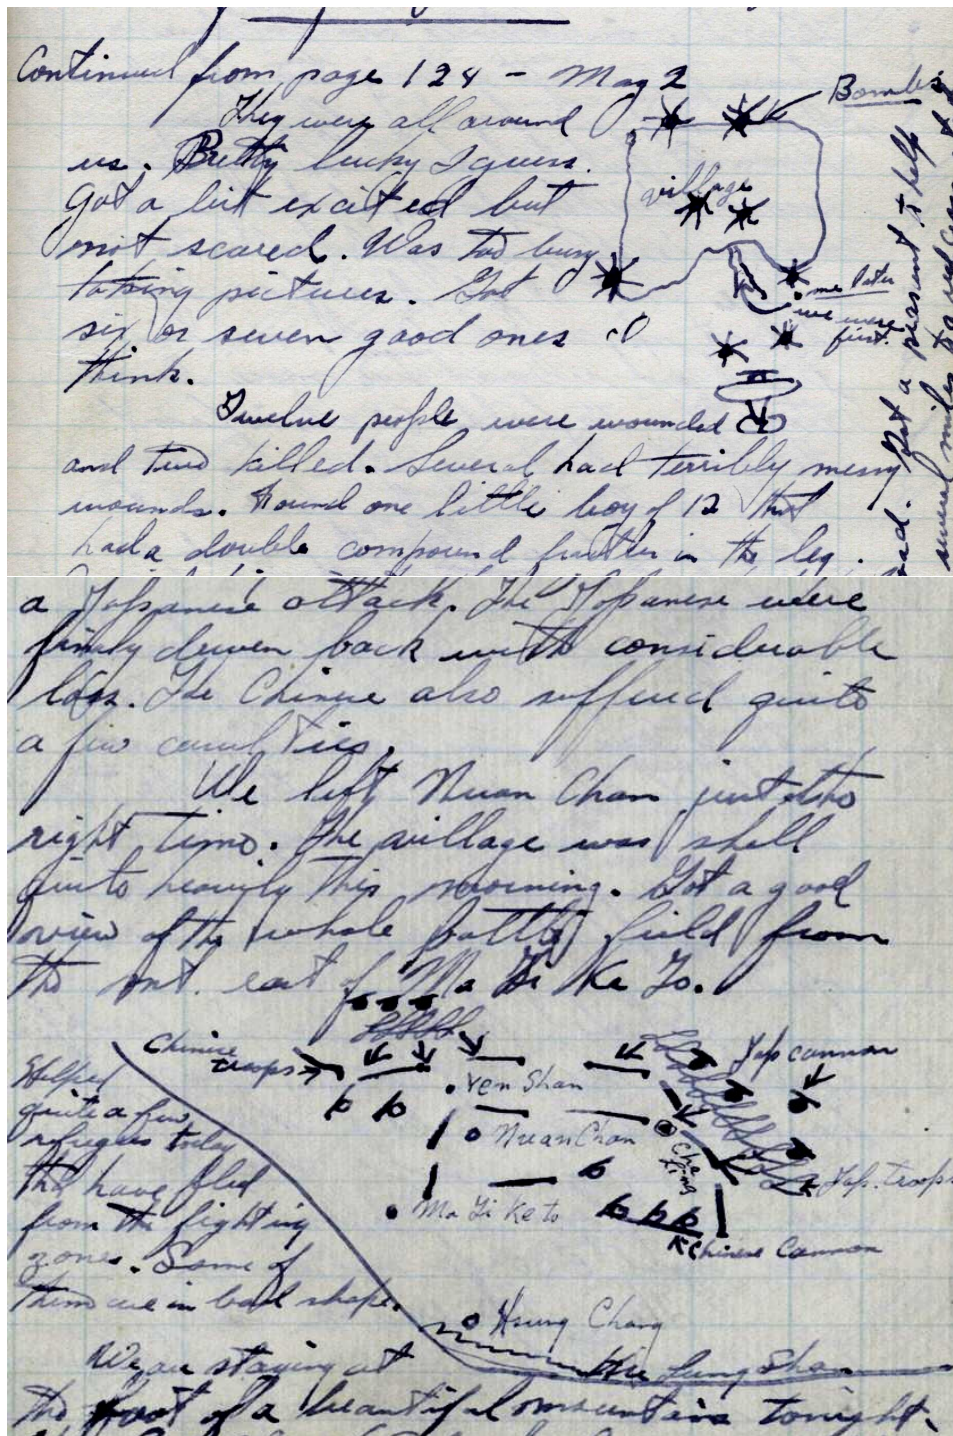 Continued from page 128 - May 2
They were all around
us. Pretty lucky I guess.
Got a bit excited but
not scared. Was too busy
taking pictures. Got
six or seven good ones I
think.
Bombs
village
me later
we were
first.
Twelve people were wounded
and two killed. Several had terribly messy
wounds. Found one little boy of 12 that
had a double compound fracture in the leg.
Got a peasant to help
several miles to
a Japanese attack. The Japanese were
finaly driven back with considerable
loss. The Chinese also suffered quite
a few casulties.
We left Nuan Chan just at the
right time. The village was shell
quite heavily this morning. Got a good
view of the whole battle field from
the mt. east of Ma Ti Ke To.
Chinese
troops
Jap cannon
Yen Shan
Nuan Chan
Jap. troops
Ma Ti Ke to
Chinese Cannon
Helped
quite a few
refugees today
tha have fled
from the fighting
zones. Some of
them are in bad shape.
Hsung Chang
Shan
We are staying at
the foot of a beautiful mountain tonight.